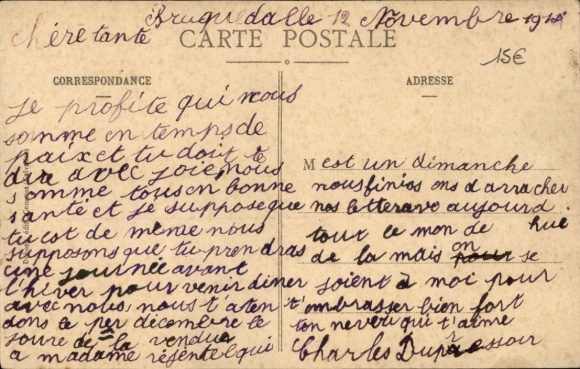 Bruquedalle 12 Novembre 191
chère tante
CARTE POSTALE
15€
CORRESPONDANCE
ADRESSE
Je profite qui nous
somme en temps de
paix et tu doit te
dire avec joie nous
somme tous en bonne
santé et je suppose que
tu est de meme nous
supposons que tu prendras
une journée avant
l'hiver pour venir diner
avec nous nous t'aten
dons le per décembre le
soure de la vendua
a madame résentel qui
M est un dimanche
nous finios ons d'arracher
nos betterave aujourd
hué
tout le mon de
de la mais on se
soient à moi pour
t'ombrasser bien fort
ton neveu qui t'aime
Charles Dupressoir